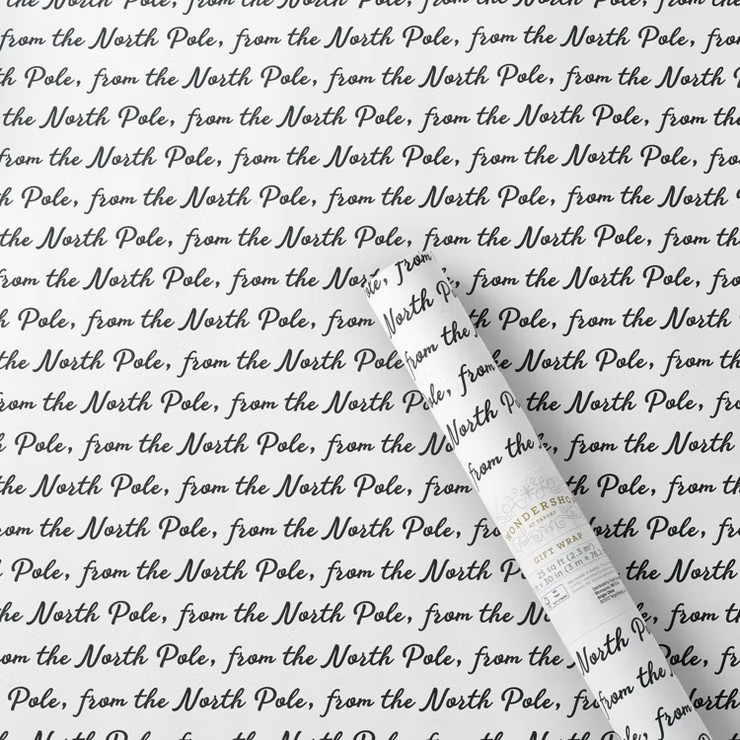 the North Pole, from the North Pole, from the North Pole, from
from the North Pole, from the North Pole, from the North Pole, from
Pole, from the North Pole, from the North Pole, from the North
the North Pole, from the North Pole, from the North Pole, from the
from the North Pole, from the North Pole, from the North Pole,
Pole, from the North Pole, from the North Pole, from the North Pole,
the North Pole, from the North Pole, from the North Pole, from the
from the North Pole, from the North Pole, from the North Pole,
Pole, from the North Pole, from the North
the North Pole, from the North Pole, from the North Pole, from
from the North Pole, from the North the North Pole,
Pole, from the North Pole, from the North Pole, from the North
the North Pole, from the North Pole, from North Pole, from the
from the North Pole, from the North Pole, North Pole,
Pole, from the North Pole, from the North the North
the North Pole, from the North Pole, from the North Pole, from
from the North Pole, from the North Pole, from the Pole,
Pole, from the North Pole, from the North Pole, North
from
North
from the
from
North
from the
WONDERSHOP
BY TARGET
GIFT WRAP
25 sq ft (2.3 m²)
30 in (3 m x
North
from the
from